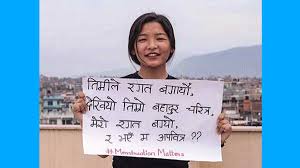 तिमीले रगत बगायौ,
देखियो तिम्रो बहादुर चरित्र,
मेरो रगत बग्यो,
र भएँ म अपवित्र ??
#Menstruation Matters